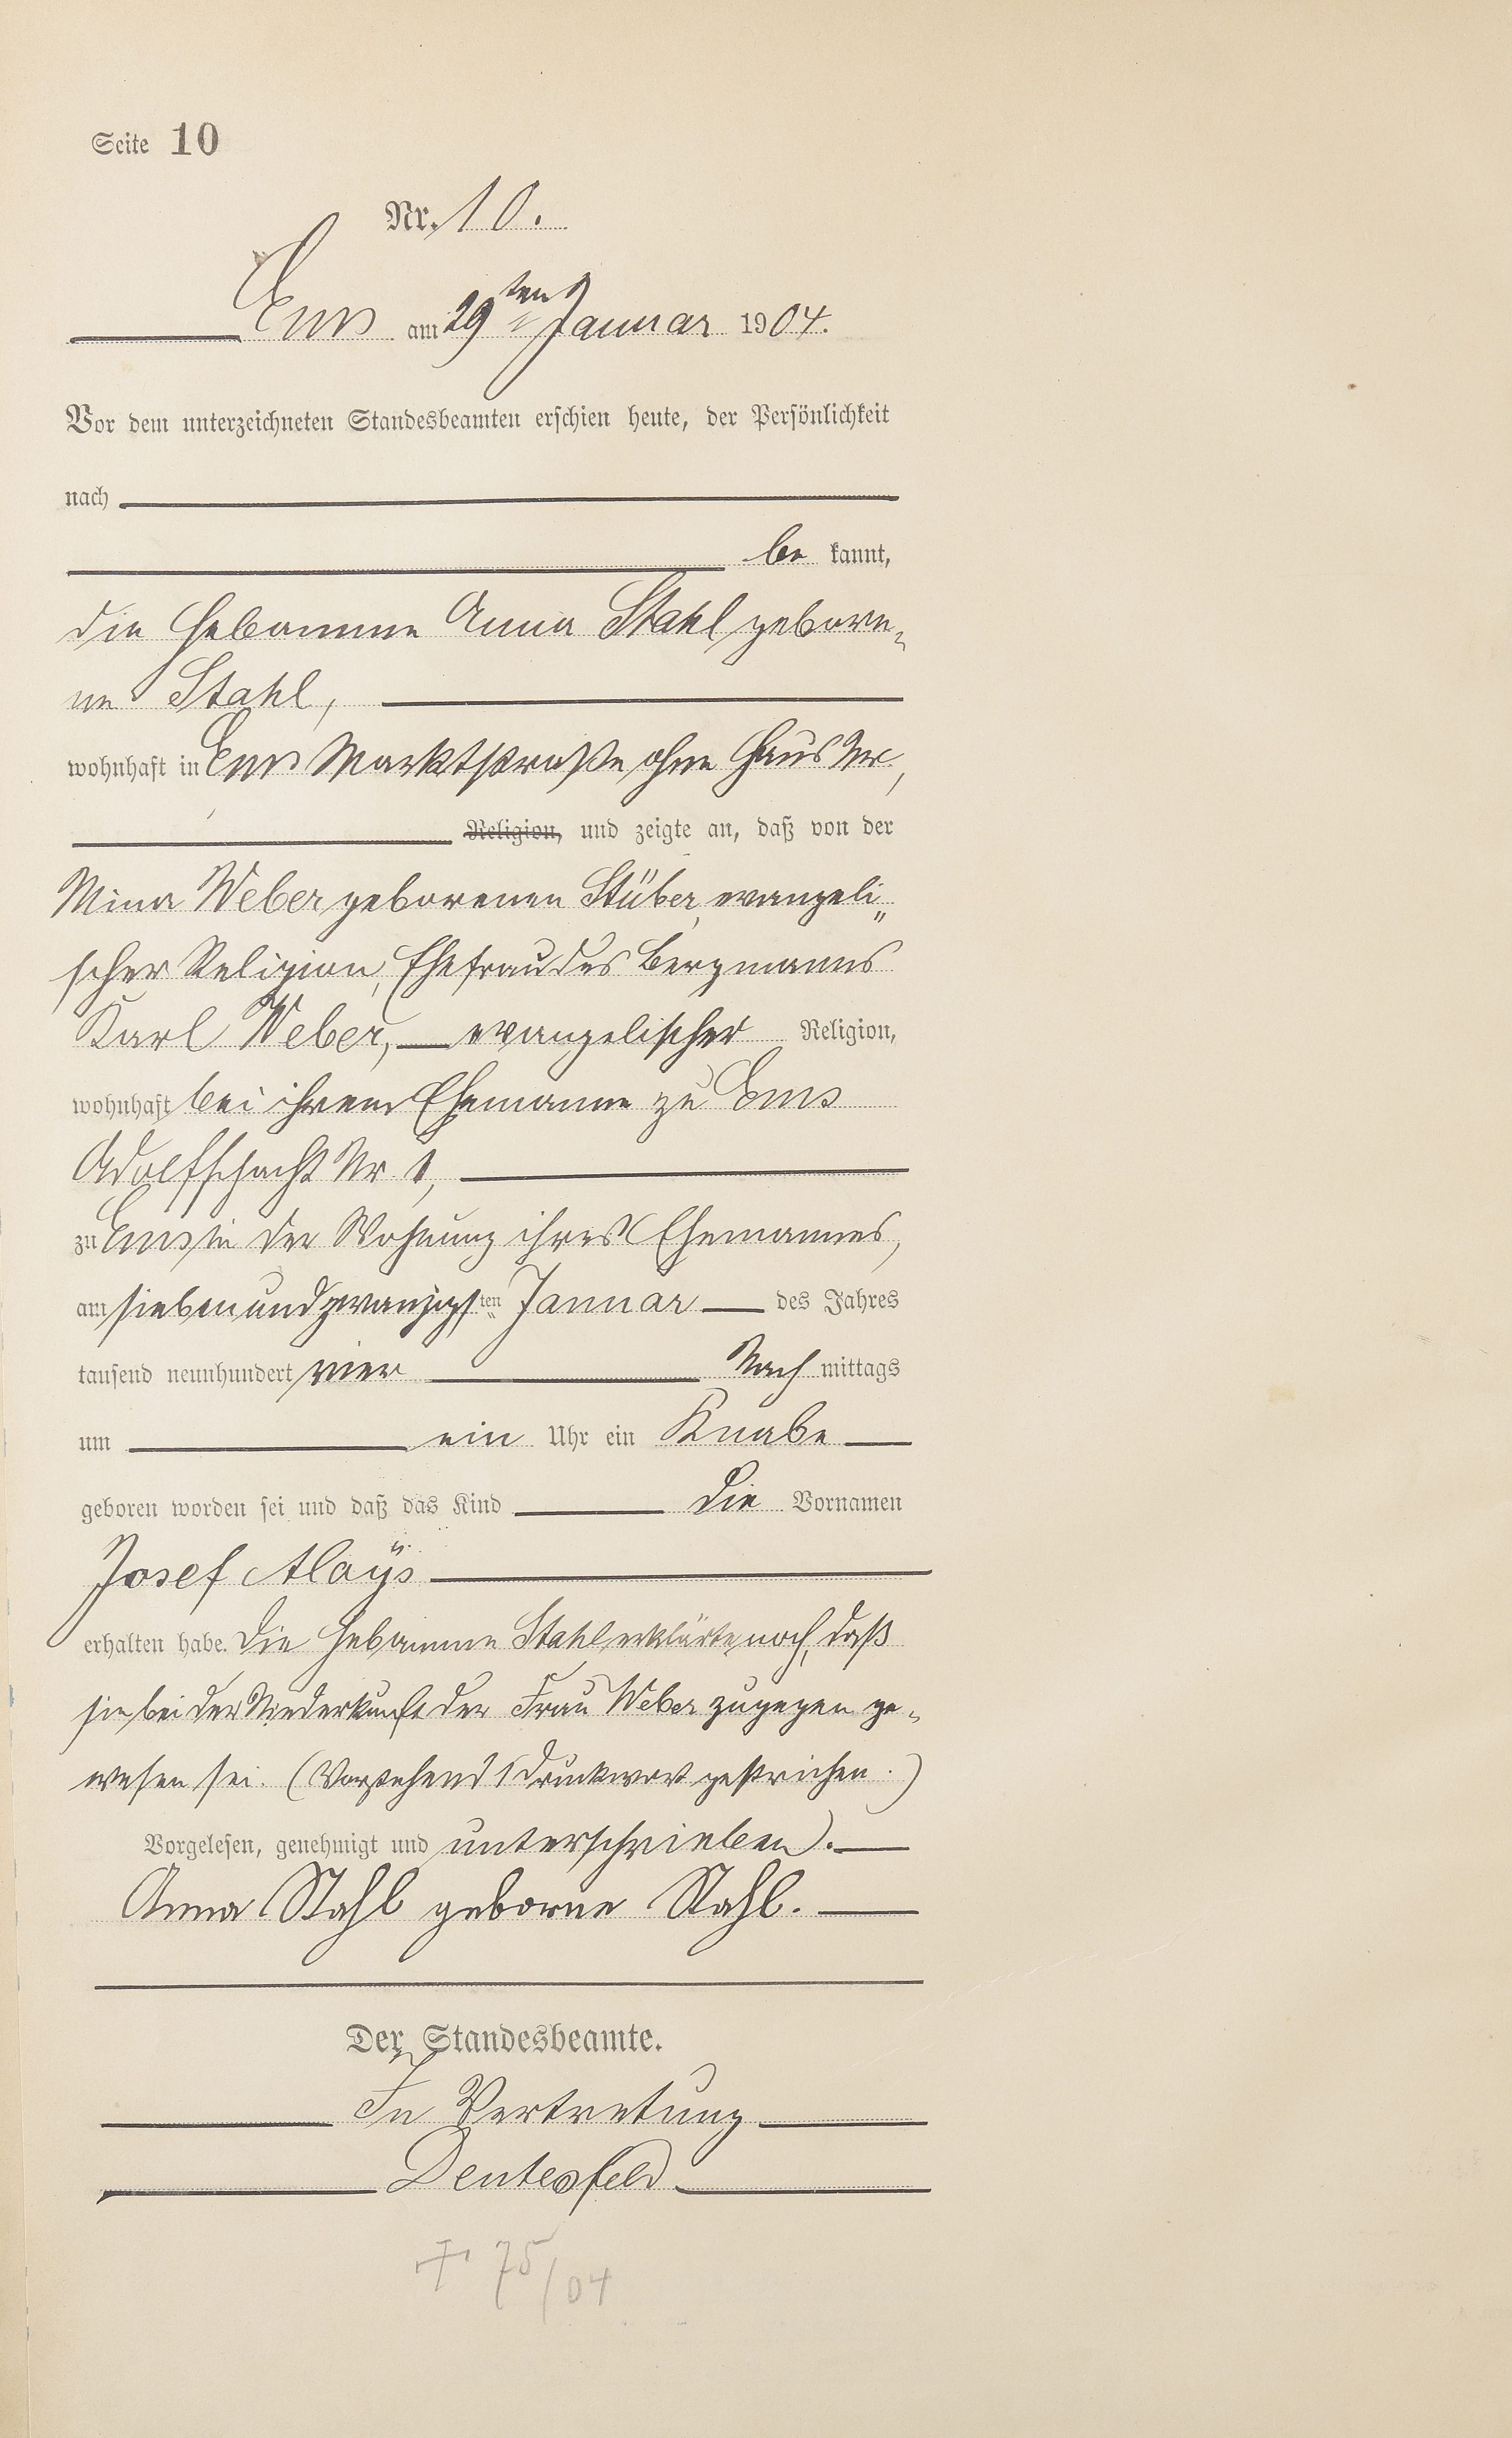 Seite 10
Nr. 10.
Ems am 29ten Januar 1904.
Vor dem unterzeichneten Standesbeamten erschien heute, der Persönlichkeit
nach
be kannt,
die Hebamme Anna Stahl gebore-
ne Stahl,
wohnhaft in Ems Marktstraße ohne Haus Nr,
Religion, und zeigte an, daß von der
Mina Weber geborenen Stüber, evangeli„
scher Religion, Ehefrau des Bergmanns
Karl Weber, evangelischer Religion,
wohnhaft bei ihrem Ehemanne zu Ems
Adolfschacht Nr 1,
zu Ems in der Wohnung ihres Ehemannes,
am siebenundzwanzigsten Januar des Jahres
tausend neunhundert vier Nach mittags
um ein Uhr ein Knabe
geboren worden sei und daß das Kind die Vornamen
Josef Aloÿs
erhalten habe. Die Hebamme Stahl erklärte noch, daß
sie bei der Niederkunft der Frau Weber zugegen ge-
wesen sei. (Vorstehend 1 Druckwort gestrichen.)
Vorgelesen, genehmigt und unterschrieben.
Anna Stahl geborne Stahl.
Der Standesbeamte.
In Vertretung
+ 75/04